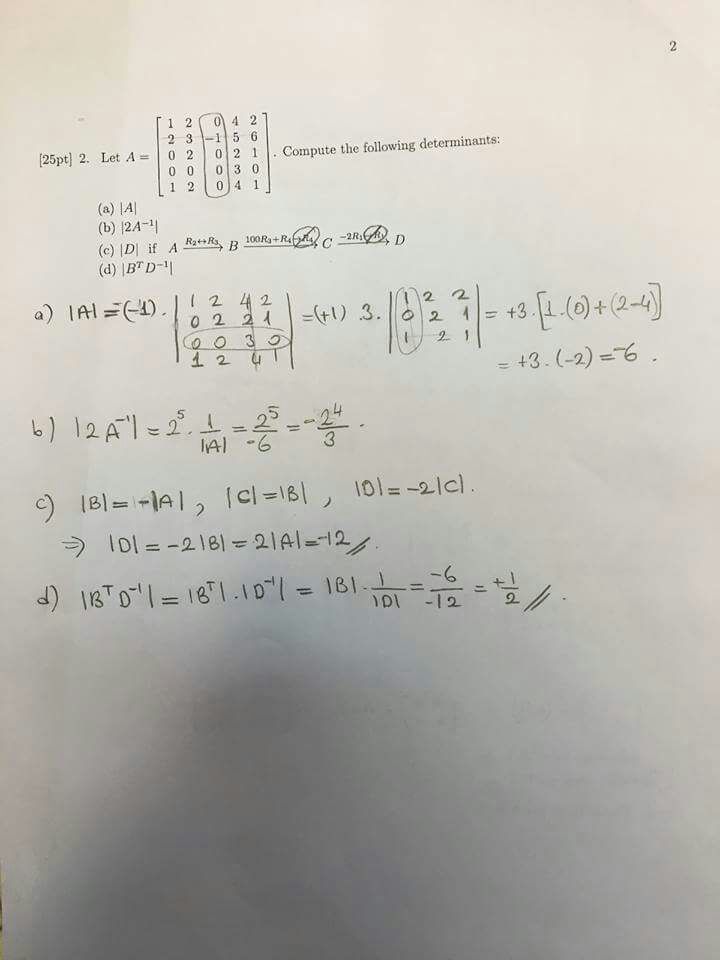 2
[25pt] 2. Let A = [ 1 2 0 4 2
2 3 -1 5 6
0 2 0 2 1
0 0 0 3 0
1 2 0 4 1 ] . Compute the following determinants:
(a) |A|
(b) |2A⁻¹|
(c) |D| if A R₂↔R₃→ B 100R₃+R₄→R₄ C -2R₁ → D
(d) |BᵀD⁻¹|
a) |A| = -(-1) . | 1 2 4 2
0 2 2 1
0 0 3 0
1 2 4 1 | = (+1) .3. | 1 2 2
0 2 1
1 2 1 | = +3 . [1.(0)+(2-4)]
= +3 . (-2) = -6 .
b) |2A⁻¹| = 2⁵ . 1/|A| = 2⁵/-6 = -2⁴/3 .
c) |B| = -|A| , |C| = |B| , |D| = -2|C| .
⇒ |D| = -2|B| = 2|A| = -12 //.
d) |BᵀD⁻¹| = |Bᵀ| . |D⁻¹| = |B| . 1/|D| = -6/-12 = +1/2 // .